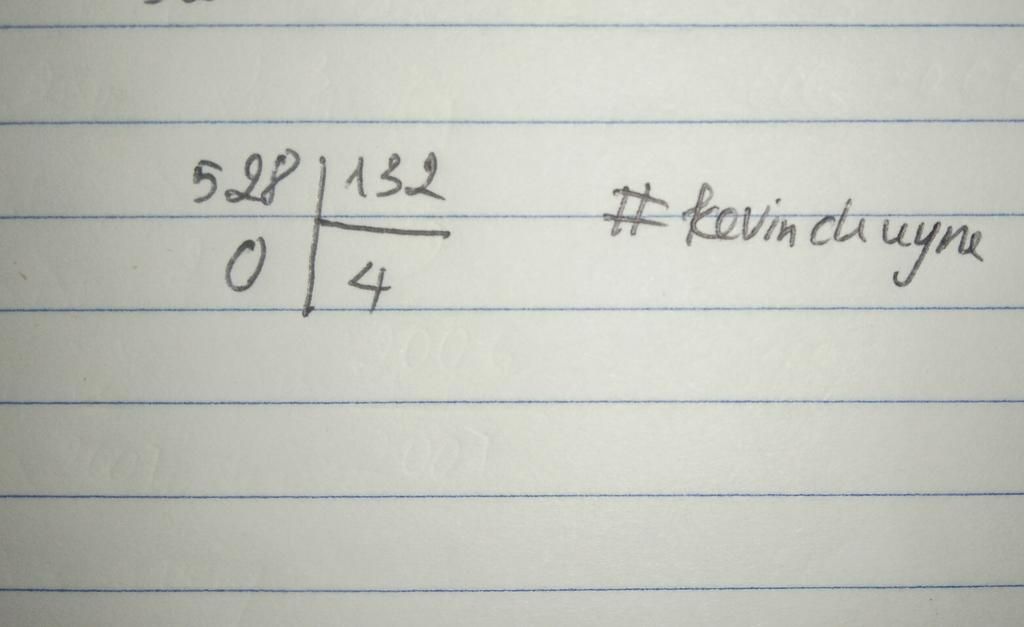 528 | 132
0 | 4
#kevinchuyne